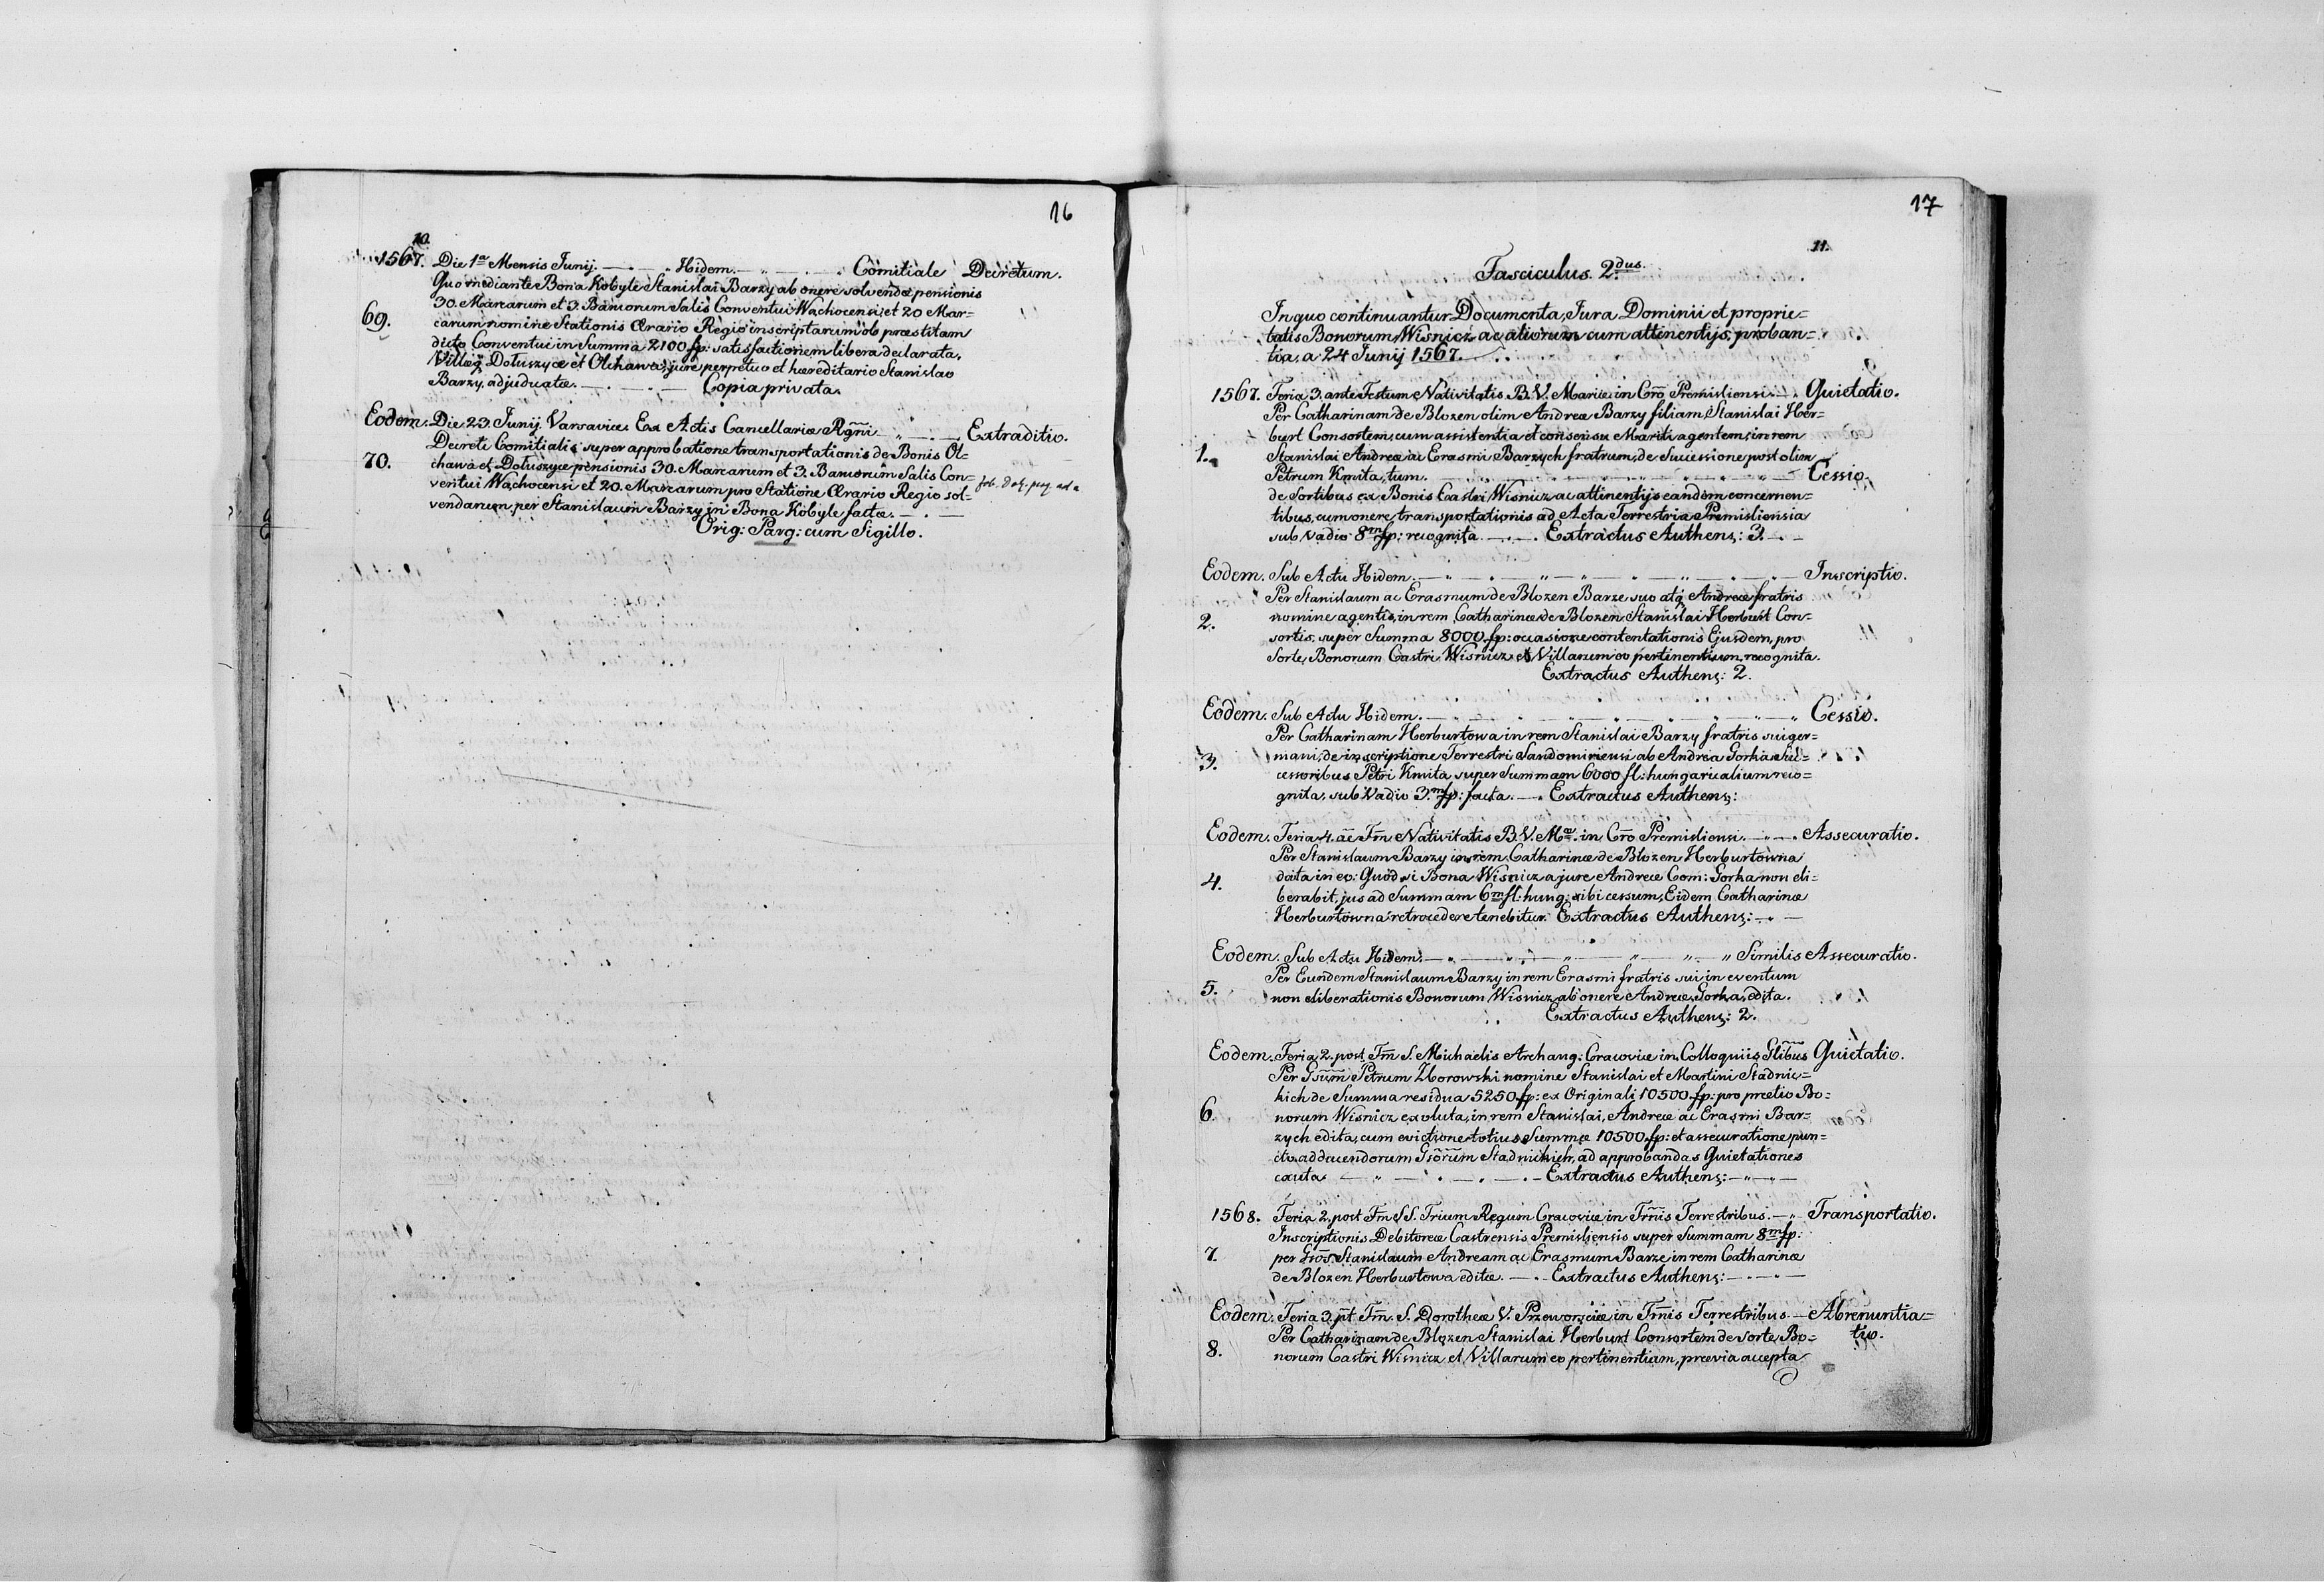 16
10.
1567. Die 1a Mensis Junij. Ibidem. Comitiale Decretum.
Quo mediante Bona Kobyle Stanislai Barzy ab onere solvendæ pensionis
30. Marcarum et 3. Bancorum Salis Conventui Wąchocensi, et 20 Mar=
69.
carum nomine Stationis Ærario Regio inscriptarum ob præstitam
dicto Conventui in Summa 2100 fp: satisfactionem libera declarata,
Villæq Dołuszyce et Olchawa, jure perpetuo et hæreditario Stanislao
Barzy, adjudicatæ. Copia privata.
Eodem. Die 23. Junij. Varsaviæ. Ex Actis Cancellariæ Rgñi Extraditio.
Decreti Comitialis super approbatione transportationis de Bonis Ol=
70.
chawa et Dołuszyce pensionis 30. Marcarum et 3. Bancorum Salis Con=
ventui Wąchocensi et 20. Marcarum pro Statione Ærario Regio sol=
vendarum, per Stanislaum Barzy in Bona Kobyle factæ.
Orig: Parg: cum Sigillo.
17
11.
Fasciculus. 2dus.
In quo continuantur Documenta, Jura Dominii et proprie=
tatis Bonorum Wisnicz ac aliorum cum attinentijs, proban=
tia, a 24 Junij 1567.
1567. Feria 3. ante Festum Nativitatis B. V. Mariæ in Cro Premisliensi Quietatio.
Per Catharinam de Blozen olim Andreæ Barzy filiam, Stanislai Her=
burt Consortem, cum assistentia et consensu Mariti agentem, in rem
1.
Stanislai Andreæ ac Erasmi Barzych fratrum, de Successione post olim
Petrum Kmita, tum. Cessio.
de Sortibus ex Bonis Castri Wisnicz ac attinentijs eandem concernen=
tibus, cum onere transportationis ad Acta Terrestria Premisliensia
sub vadio 8m fp: recognita. Extractus Authens: 3.
Eodem. Sub Actu Ibidem. Inscriptio.
Per Stanislaum ac Erasmum de Blozen Barze suo atq Andreæ fratris
2.
nomine agentis, in rem Catharinæ de Blozen Stanislai Herburt Con=
sortis, super Summa 8000 fp: occasione contentationis Ejusdem, pro
Sorte, Bonorum Castri Wisnicz et Villarum eo pertinentium, recognita.
Extractus Authens: 2.
Eodem. Sub Actu Ibidem. Cessio.
Per Catharinam Herburtowa in rem Stanislai Barzy fratris sui ger=
3.
mani, de inscriptione Terrestri Sandomiriensi ab Andrea Gorka Suc=
cessoribus Petri Kmita super Summam 6000 fl: hungaricalium reco=
gnita, sub Vadio 3.m fp: facta. Extractus Authens:
Eodem. Feria 4. ãe Fm Nativitatis B. V. Mæ. in Cro Premisliensi. Assecuratio.
Per Stanislaum Barzy in rem Catharinæ de Blozen Herburtowna
4.
data in eo: Quod si Bona Wisnicz a jure Andreæ Com: Gorka non eli=
berabit, jus ad Summam 6m fl: hung: sibi cessum, Eidem Catharinæ
Herburtowna retrocedere tenebitur. Extractus Authens:
Eodem. Sub Actu Ibidem. Similis Assecuratio.
Per Eundem Stanislaum Barzy in rem Erasmi fratris sui in eventum
5.
non eliberationis Bonorum Wisnicz ab onere Andreæ Gorka, edita.
Extractus Authens: 2.
Eodem. Feria 2. post Fm S. Michaelis Archang: Cracoviæ in Colloquiis Glibus Quietatio.
Per Gsum Petrum Zborowski nomine Stanislai et Martini Stadnic=
kich de Summa residua 5250 fp: ex Originali 10500 fp: pro prætio Bo=
6.
norum Wisnicz exoluta, in rem Stanislai, Andreæ ac Erasmi Bar=
zych edita, cum evictione totius Summæ 10500 fp: et assecuratione pun=
cto adducendorum Gsorum Stadnickich, ad approbandas Quietationes
cauta. Extractus Authens:
1568. Feria 2. post Fm SS. Trium Regum Cracoviæ in Trñis Terrestribus. Transportatio.
Inscriptionis Debitoreæ Castrensis Premisliensis super Summam 8m fp:
7.
per Gsos Stanislaum Andream ac Erasmum Barze in rem Catharinæ
de Blozen Herburtowa editæ. Extractus Authens:
Eodem. Feria 3. pt Fm. S. Dorotheæ V. Przeworsciæ in Trñis Terrestribus Abrenuntia=
tio.
Per Catharinam de Blozen Stanislai Herburt Consortem de Sorte, Bo=
8.
norum Castri Wisnicz et Villarum eo pertinentium, prævia accepta